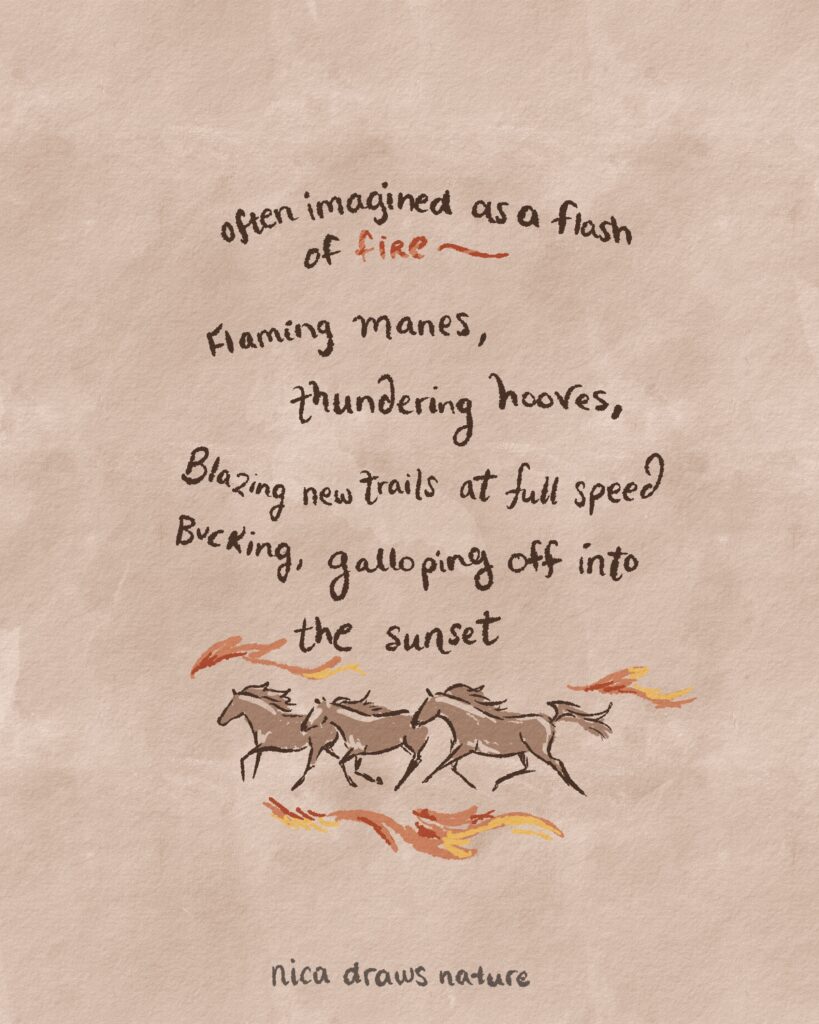 often imagined as a flash
of fire
Flaming manes,
thundering hooves,
Blazing new trails at full speed
Bucking, galloping off into
the sunset
nica draws nature